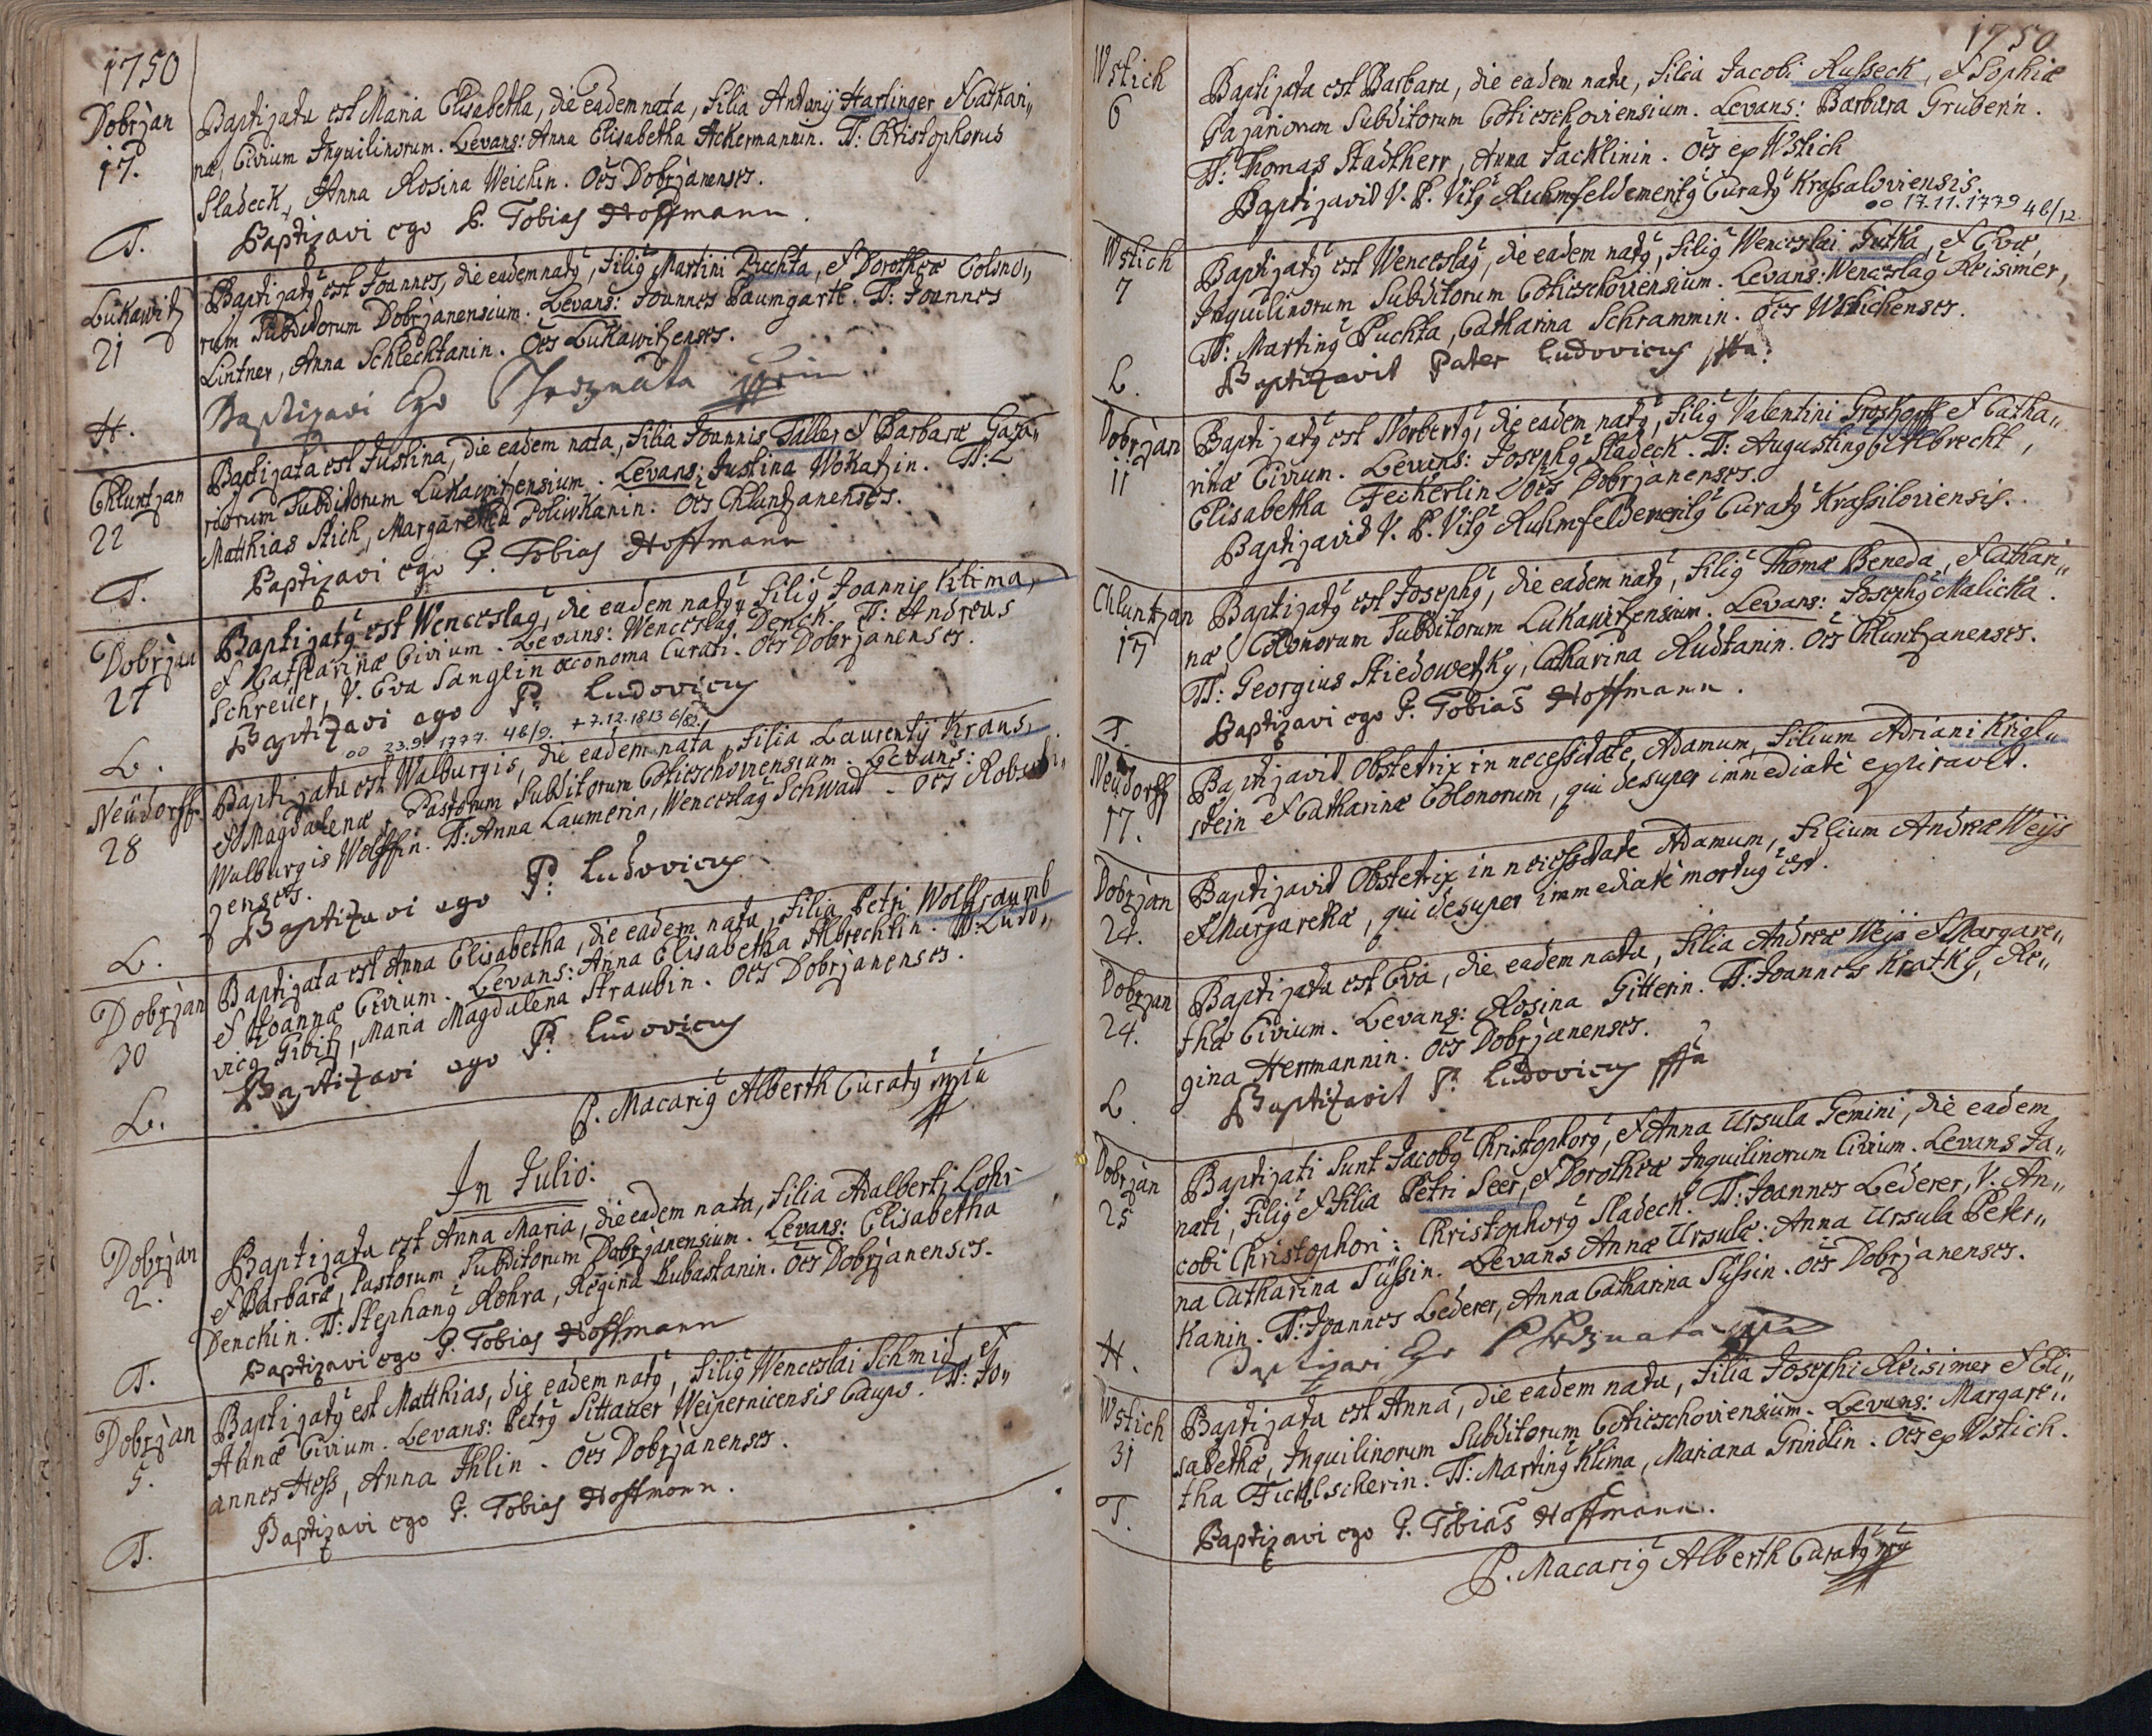 1750
Dobrzan
17.
T.
Baptizata est Maria Elisabetha, die eadem nata, Filia Antonij Hartinger et Cathari„
næ, Civium Inquilinorum. Levans: Anna Elisabetha Ackermannin. TT: Christophorus
Sladeck, Anna Rosina Weichin. Oēs Dobrzanenses.
Baptizavi ego P. Tobias Hoffmann.
Lukawitz
21
H.
Baptizatꝰ est Joannes, die eadem natꝰ, Filiꝰ Martini Puchta, et Dorotheæ Colono„
rum Subditorum Dobrzanensium. Levans: Joannes Baumgartl. TT: Joannes
Lintner, Anna Schlechtanin. Oēs Lukawitzenses.
Baptizavi Ego
Chluntzan
22
T.
Baptizata est Justina, die eadem nata, Filia Joannis Taller et Barbaræ Gaza„
riorum Subditorum Lukawitzensium. Levans: Justina Wokatzin. TT:
Matthias Stich, Margaretha Poliwkanin. Oēs Chluntzanenses.
Baptizavi ego P. Tobias Hoffmann
Dobrzan
27
L.
Baptizatꝰ est Wenceslaꝰ, die eadem natꝰ, Filiꝰ Joannis Klima,
et Catharinæ Civium. Levans: Wenceslaꝰ Denck. TT: Andreas
Schreüer, V. Eva Sanglin œconoma Curati. Oēs Dobrzanenses.
Baptizavi ego P. Ludovicus
oo 23.9. 1777. 46/9. + 7.12.1813 6/82.
Neüdorff
28
L.
Baptizata est Walburgis, die eadem nata, Filia Laurentij Krans,
et Magdalenæ, Pastorum Subditorum Cotieschoviensium. Levans:
Walburgis Wolffin. TT: Anna Laumerin, Wenceslaꝰ Schwad. Oēs
zenses.
Baptizavi ego P. Ludovicus
Dobrzan
30
L.
Baptizata est Anna Elisabetha, die eadem nata, Filia Petri Wolfsraumb
et Joannæ Civium. Levans: Anna Elisabetha Albrechtin. TT: Ludo„
vicꝰ Gibitz, Maria Magdalena Straubin. Oēs Dobrzanenses.
Baptizavi ego P. Ludovicus
P. Macariꝰ Alberth Curatꝰ mpia
In Julio:
Dobrzan
2.
T.
Baptizata est Anna Maria, die eadem nata, Filia Adalberti Lohr
et Barbaræ, Pastorum Subditorum Dobrzanensium. Levans: Elisabetha
Denckin. TT: Stephanꝰ Rohra, Regina Kubastanin. Oēs Dobrzanenses.
Baptizavi ego P. Tobias Hoffmann
Dobrzan
5.
T.
Baptizatꝰ est Matthias, die eadem natꝰ, Filiꝰ Wenceslai Schmid, et
Annæ Civium. Levans: Petrꝰ Sittauer Weipernicensis Caupo. TT: Jo„
annes Hess, Anna Ihlin. Oēs Dobrzanenses.
Baptizavi ego P. Tobias Hoffmann.
1750
Wstich
6
Baptizata est Barbara, die eadem nata, Filia Jacobi Russeck, et Sophiæ
Gazariorum Subditorum Cotieschoviensium. Levans: Barbara Gruberin.
TT: Thomas Stadtherr, Anna Jacklinin. Oēs ex Wstich
Baptizavit V. P. Vitꝰ Ruhmfeld emeritꝰ Curatꝰ Krassaloviensis.
oo 17.11.1779 46/12
Wstich
7
L.
Baptizatꝰ est Wenceslaꝰ, die eadem natꝰ, Filiꝰ Wenceslai Gutka, et Evæ,
Inquilinorum Subditorum Cotieschoviensium. Levans: Wenceslaꝰ Reisimer,
TT: Martinꝰ Puchta, Catharina Schrammin. Oēs Wstichenses.
Baptizavit Pater Ludovicus
Dobrzan
11
Baptizatꝰ est Norbertꝰ, die eadem natꝰ, Filiꝰ Valentini Groskopff et Catha„
rinæ Civium. Levans: Josephꝰ Sladeck. TT: Augustinꝰ Albrecht,
Elisabetha Feckerlin. Oēs Dobrzanenses.
Baptizavit V. P. Vitꝰ Ruhmfeld emeritꝰ Curatꝰ Krassiloviensis.
Chluntzan
17
T.
Baptizatꝰ est Josephꝰ, die eadem natꝰ, Filiꝰ Thomæ Beneda, et Cathari„
næ, Colonorum Subditorum Lukawitzensium. Levans: Josephꝰ Malicka.
TT: Georgius Stiedowetzky, Catharina Rudtanin. Oēs Chluntzanenses.
Baptizavi ego P. Tobias Hoffmann.
Neüdorff
17.
Baptizavit Obstetrix in necessitate, Adamum, Filium Adriani Kriglˌ
stein et Catharinæ Colonorum, qui desuper immediatè expiravit.
Dobrzan
24.
Baptizavit Obstetrix in necessitate Adamum, Filium Andreæ Weijs
et Margarethæ, qui desuper immediatè mortuꝰ est.
Dobrzan
24.
L
Baptizata est Eva, die eadem nata, Filia Andreæ Weijs et Margare„
thæ Civium. Levans: Rosina Gitterin. TT: Joannes Kratky, Re„
gina Hermannin. Oēs Dobrzanenses.
Baptizavit P. Ludovicus
Dobrzan
25
H.
Baptizati sunt Jacobꝰ Christophorꝰ, et Anna Ursula Gemini, die eadem
nati, Filiꝰ et Filia Petri Seer, et Dorotheæ Inquilinorum Civium. Levans Ja„
cobi Christophori: Christophorꝰ Sladeck. TT: Joannes Lederer, V. An„
na Catharina Süssin. Levans Annæ Ursulæ: Anna Ursula Peter„
kanin. TT: Joannes Lederer, Anna Catharina Süssin. Oēs Dobrzanenses.
Baptizavi Ego
Wstich
31
T.
Baptizata est Anna, die eadem nata, Filia Josephi Reisimer et Eli„
sabethæ, Inquilinorum Subditorum Cotieschoviensium. Levans: Margare„
tha Ficklscherin. TT: Martinꝰ Klima, Mariana Grindlin. Oēs ex Wstich.
Baptizavi ego P. Tobias Hoffmann.
P. Macariꝰ Alberth Curatꝰ mpia